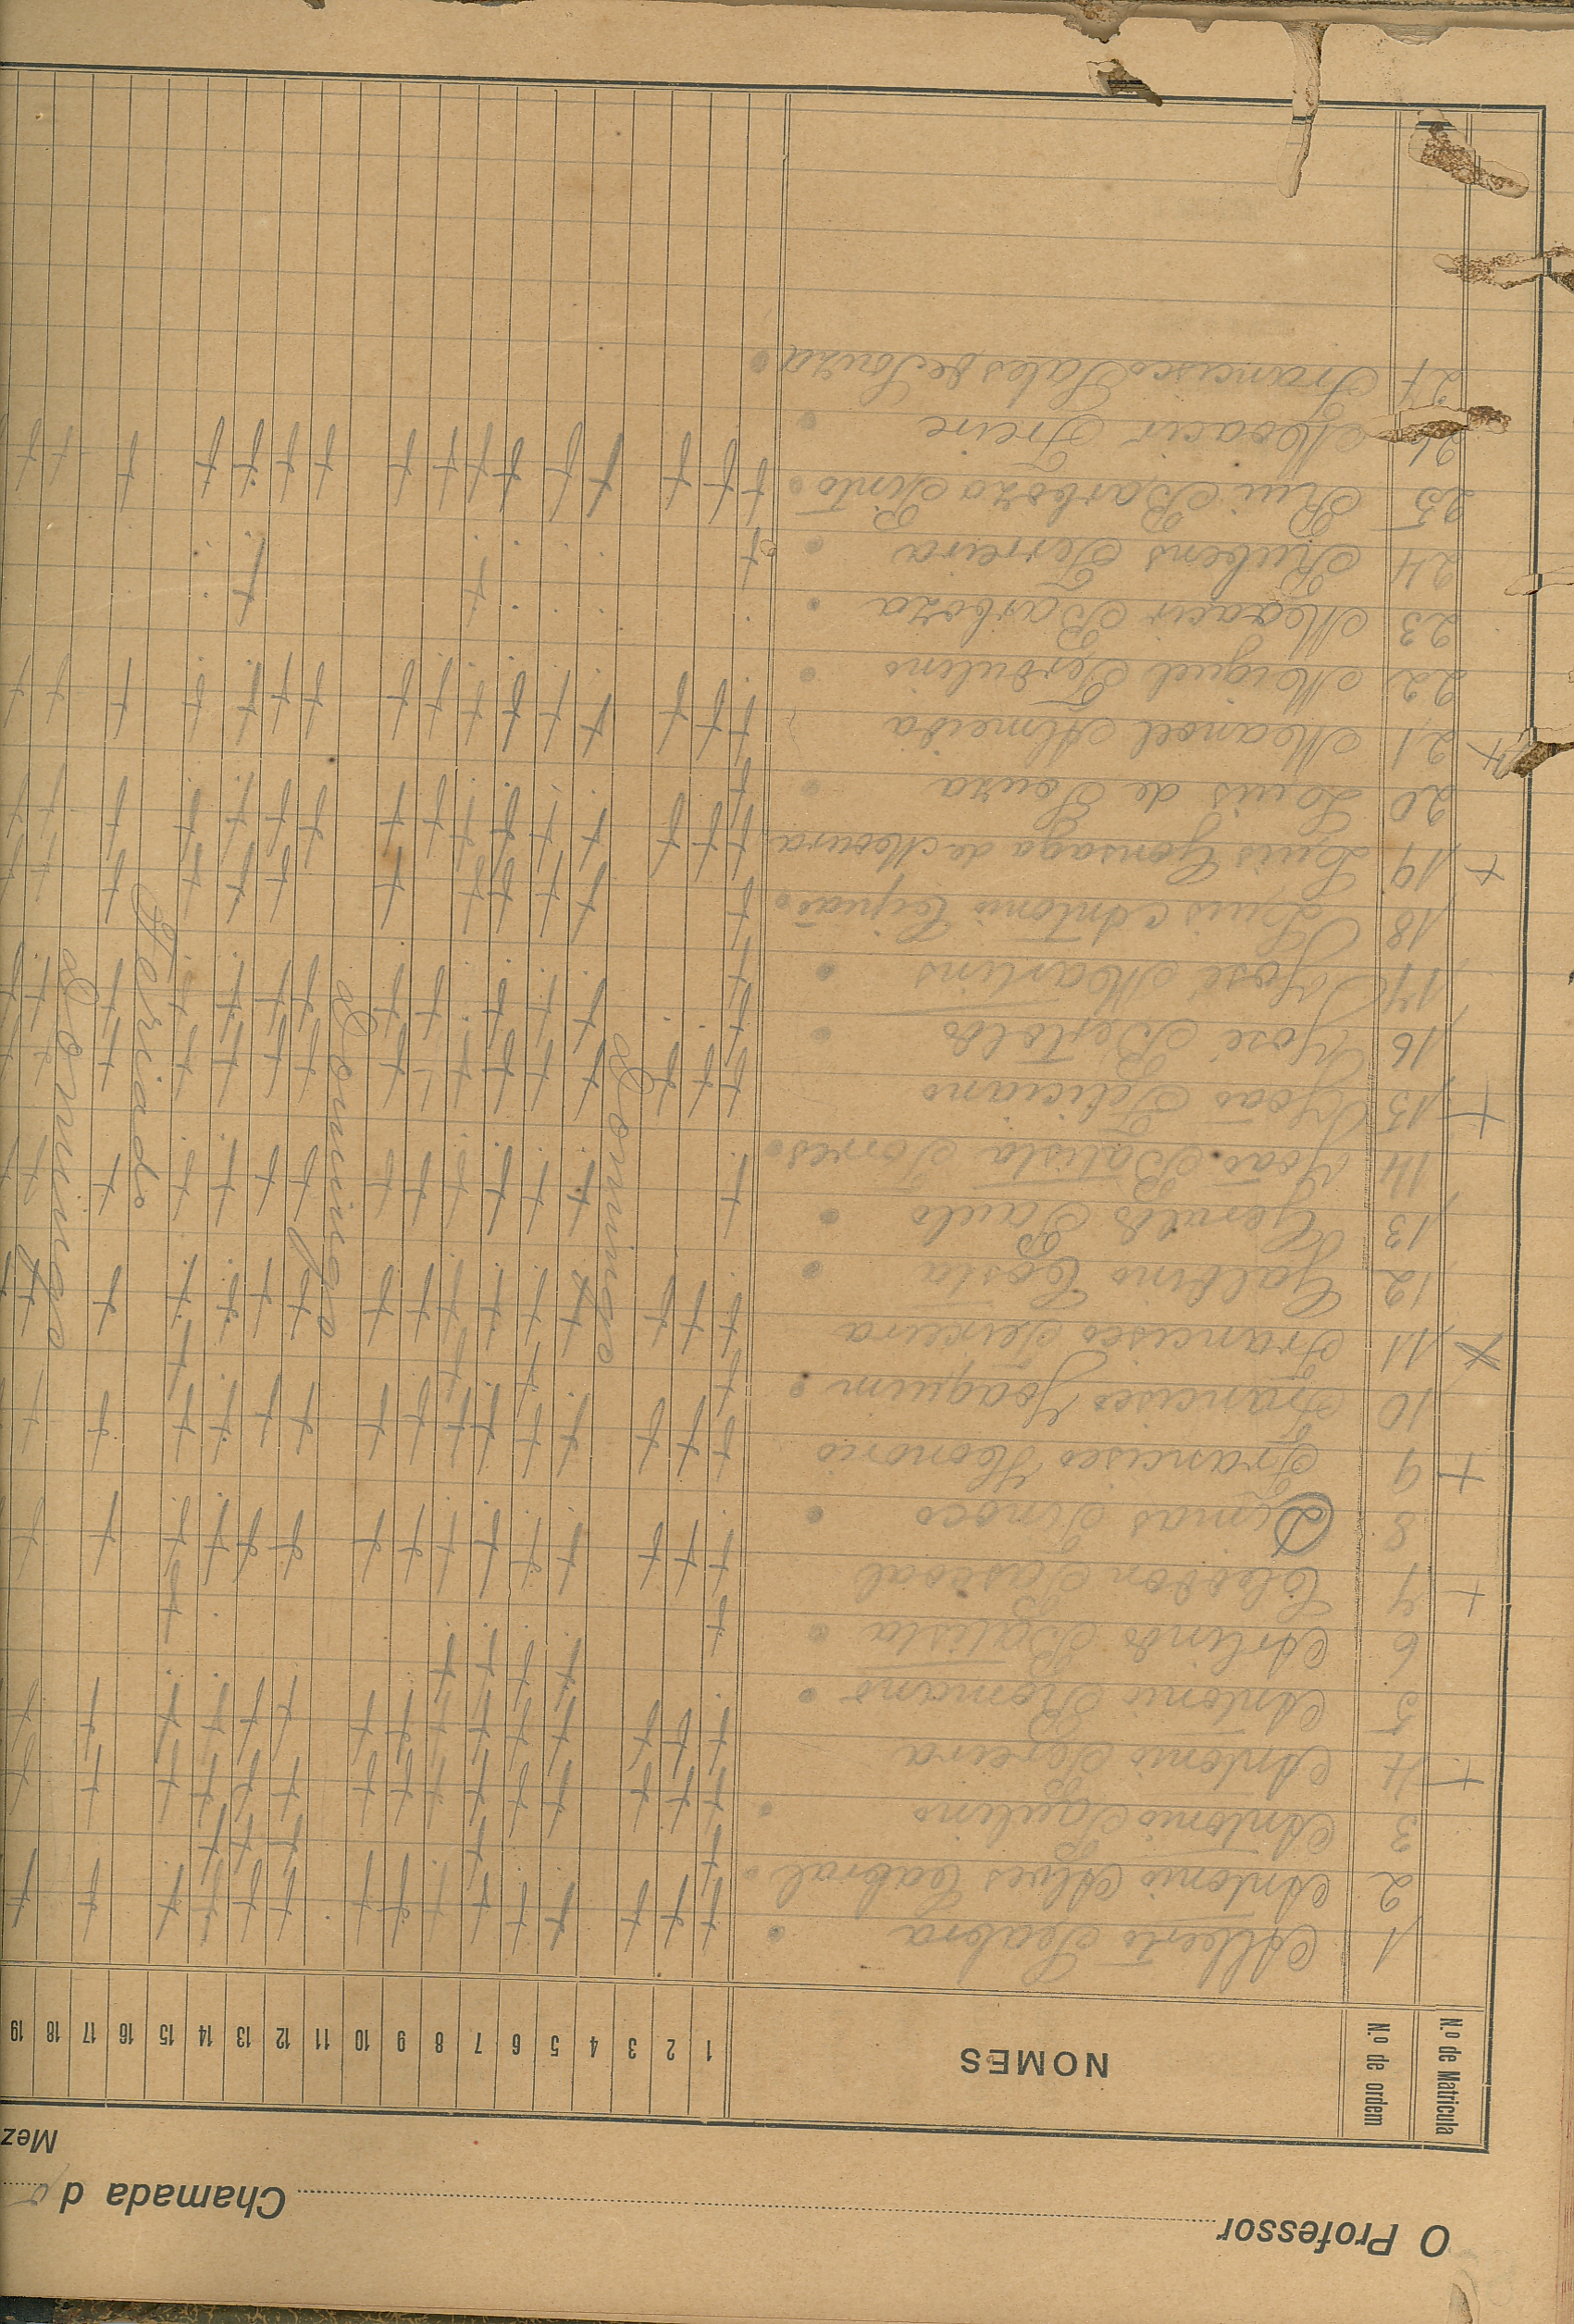 O Professor Chamada d
Mez
N.º de Matricula N.º de ordem NOMES 1 2 3 4 5 6 7 8 9 10 11 12 13 14 15 16 17 18 19
1 Alberto Seabra
2 Antonio Alves Cabral
3 Antonio Aquilino
4 Antonio Pereira
5 Antonio Romano
6 Arlindo Batista
7 Cleodon Pascoal
8 Dimas Tinoco
9 Francisco Honorio
10 Francisco Joaquim
11 Francisco Teixeira
12 Galbino Costa
13 Geraldo Paulo
14 João Batista Torres
15 João Feliciano
16 José Bertoldo
17 José Martins
18 Luis Antonio
19 Luis Gonsaga de Moura
20 Louis de Souza
21 Manoel Almeida
22 Miguel Tertulino
23 Moacir Barboza
24 Rubens Ferreira
25 Rui Barboza Pinto
26 Moacir Freire
27 Francisco Sales de Souza
Domingo
Domingo
Feriado
Domingo